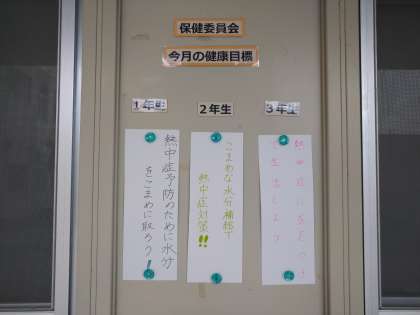 保健委員会
今月の健康目標
1年生
2年生
3年生
熱中症予防のために水分
をこまめに取ろう!
こまめな水分補給で
熱中症対策!!
熱中症に気をつけ
て生活しよう